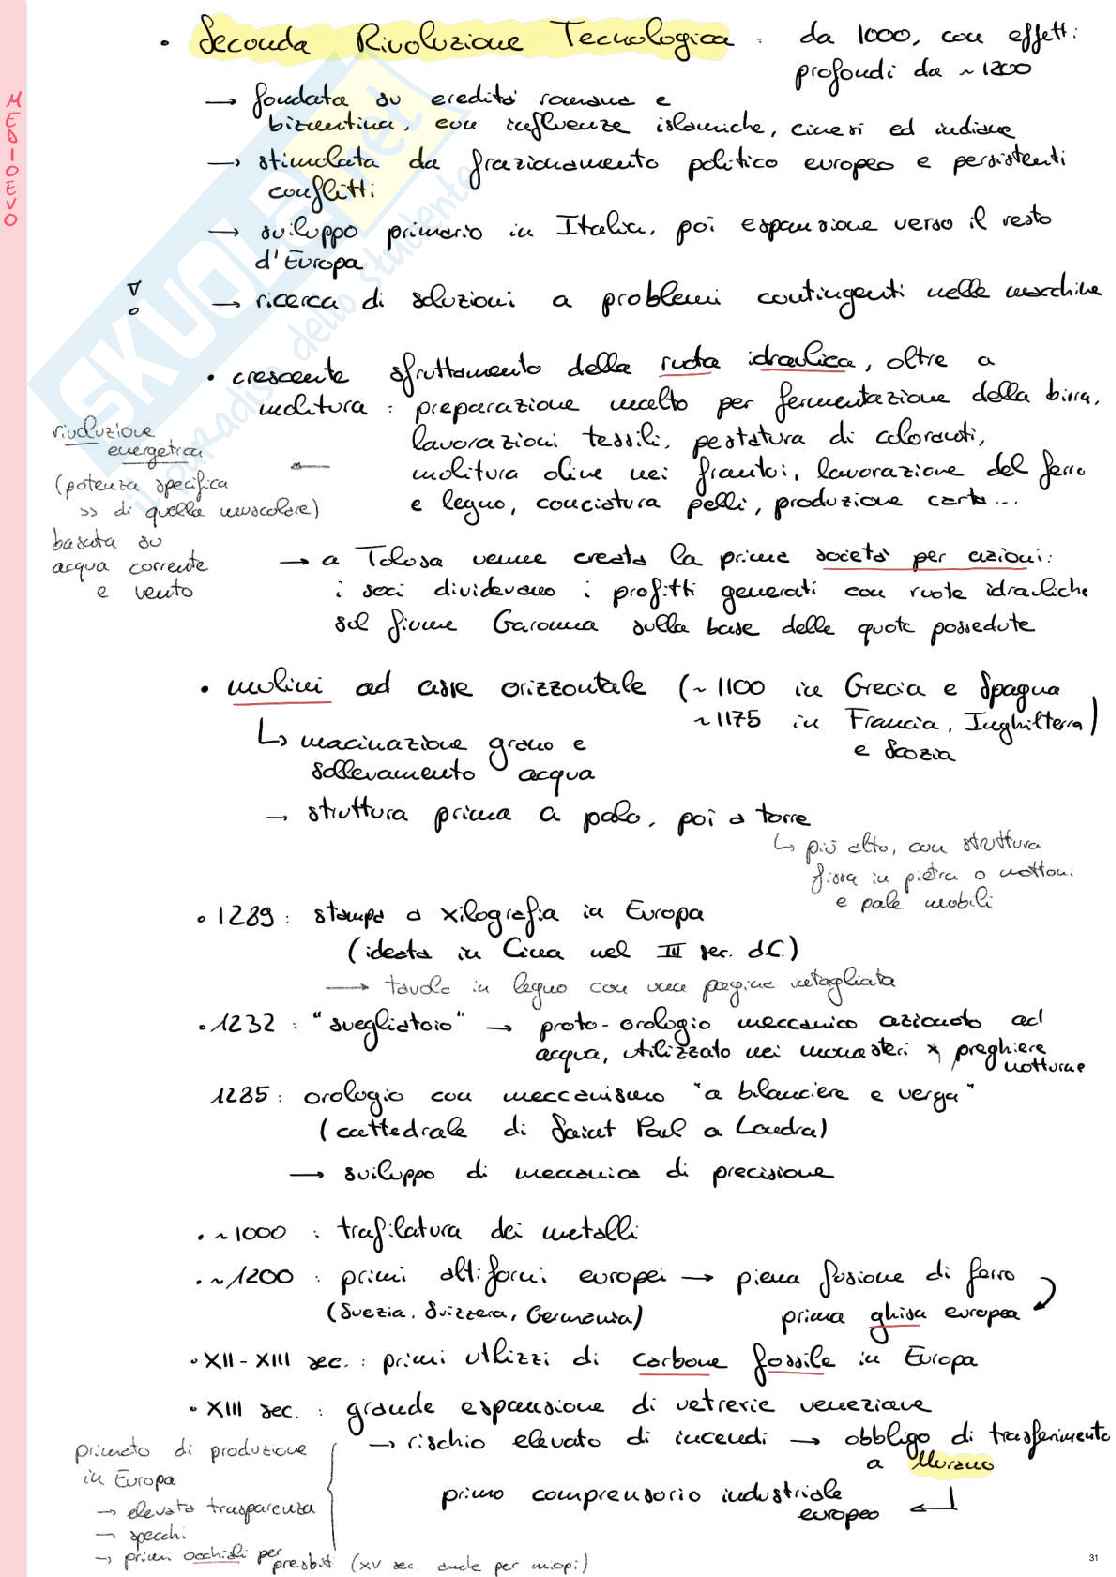 MEDIOEVO
• Seconda Rivoluzione Tecnologica : da 1000, con effetti
profondi da ~ 1200
→ fondata su eredità romana e
bizantina, con influenze islamiche, cinesi ed indiane
→ stimolata da frazionamento politico europeo e persistenti
conflitti
→ sviluppo primario in Italia, poi espansione verso il resto
d'Europa
→ ricerca di soluzioni a problemi contingenti nelle macchine
• crescente sfruttamento della ruota idraulica, oltre a
molitura : preparazione malto per fermentazione della birra,
lavorazioni tessili, pestatura di coloranti,
molitura olive nei frantoi, lavorazione del ferro
e legno, conciatura pelli, produzione carta...
rivoluzione
energetica
(potenza specifica
>> di quella muscolare)
basata su
acqua corrente
e vento
→ a Tolosa venne creata la prima società per azioni:
i soci dividevano i profitti generati con ruote idrauliche
sul fiume Garonna sulla base delle quote possedute
• mulini ad asse orizzontale (~ 1100 in Grecia e Spagna
~ 1175 in Francia, Inghilterra)
e Scozia
↳ macinazione grano e
sollevamento acqua
→ struttura prima a palo, poi a torre
↳ più alto, con struttura
fissa in pietra o mattoni
e pale mobili
• 1289 : stampa a xilografia in Europa
(ideata in Cina nel III sec. d.C.)
→ tavole in legno con una pagina intagliata
• 1232 : "svegliatoio" → proto-orologio meccanico azionato ad
acqua, utilizzato nei monasteri x preghiere
notturne
1285 : orologio con meccanismo "a bilanciere e verga"
(cattedrale di Saint Paul a Londra)
→ sviluppo di meccanica di precisione
• ~ 1000 : trafilatura dei metalli
• ~ 1200 : primi altiforni europei → piena fusione di ferro
(Svezia, Svizzera, Germania) prima ghisa europea
• XII - XIII sec. : primi utilizzi di carbone fossile in Europa
• XIII sec. : grande espansione di vetrerie veneziane
→ rischio elevato di incendi → obbligo di trasferimento
a Murano
primo comprensorio industriale
europeo
primato di produzione
in Europa
→ elevata trasparenza
→ specchi
→ primi occhiali per
presbiti (XV sec anche per miopi)
SKUOLA.net
il paradiso dello studente
31